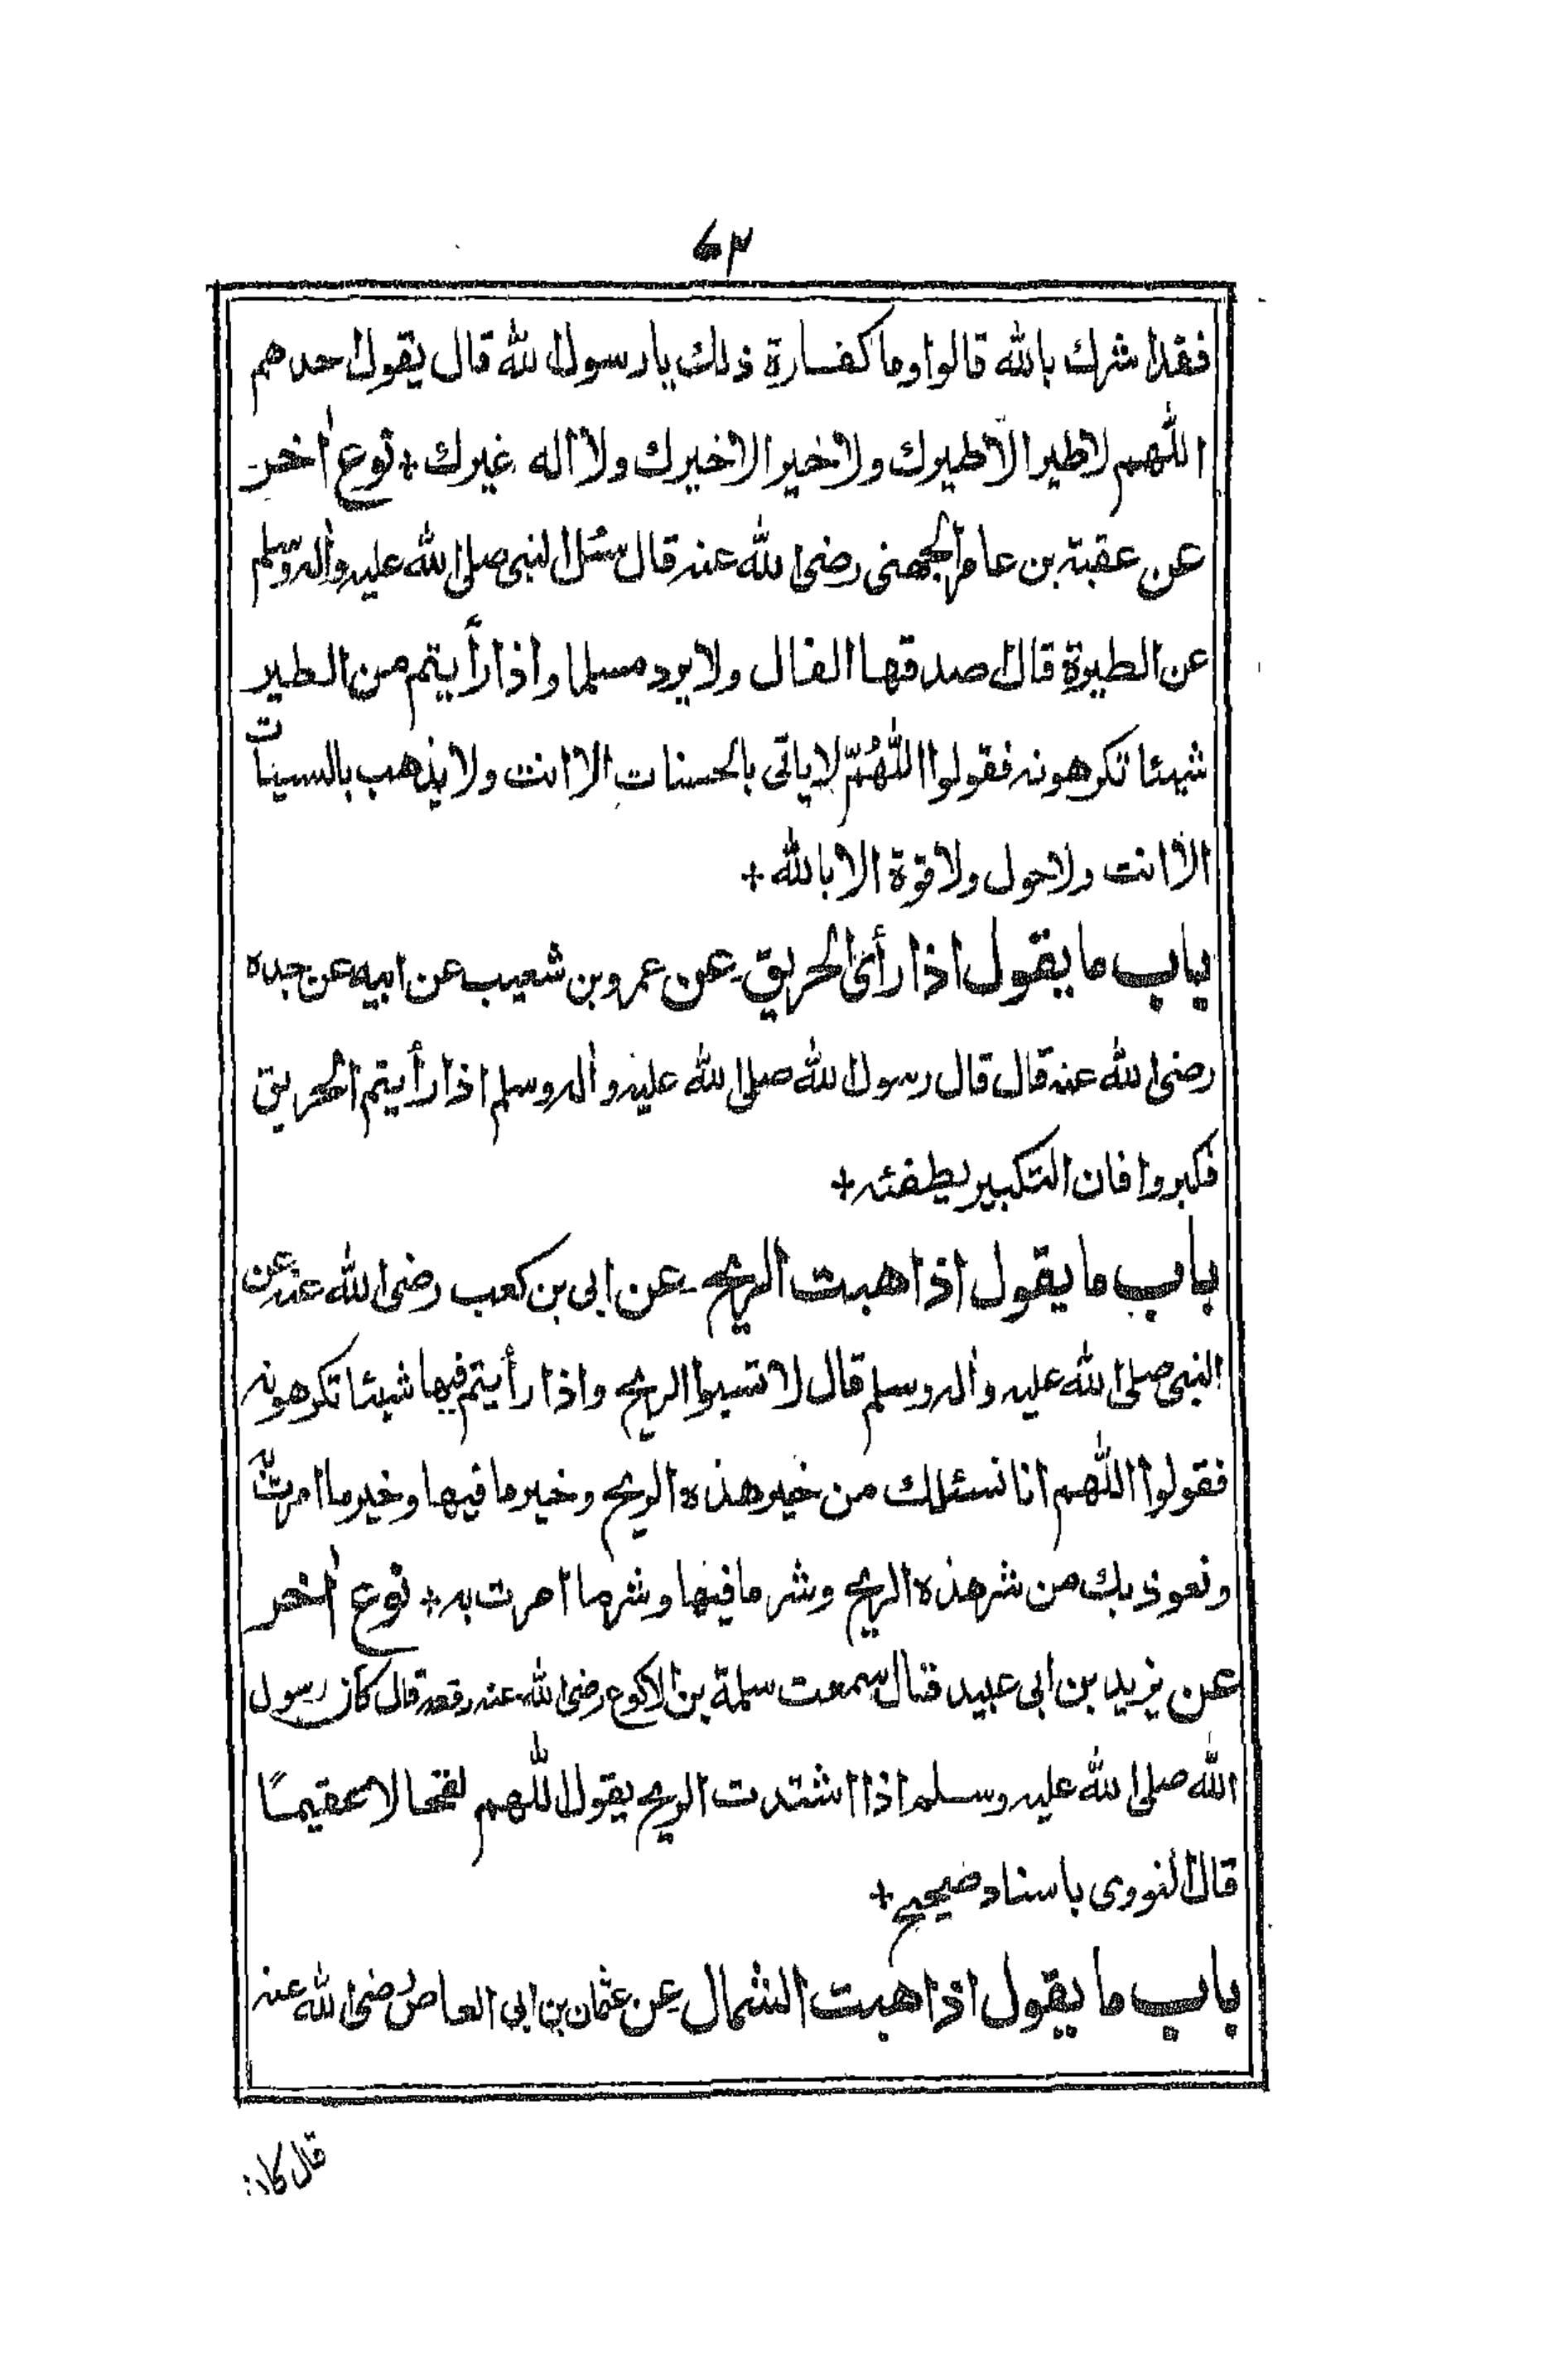 ٦٣
فقد اشرك بالله قالوا وما كفارة ذلك يا رسول الله قال يقول احدهم
اللهم لا طير الا طيرك ولا خير الا خيرك ولا اله غيرك + نوع أخر
عن عقبة بن عامر الجهنى رضى الله عنه قال سئل النبى صلى الله عليه وأله وسلم
عن الطيرة قال صدقها الفال ولا يرد مسلما واذا رأيتم من الطير
شيئا تكرهونه فقولوا اللّٰهُمَّ لا ياتى بالحسنات الا انت ولا يذهب بالسيئات
الا انت ولا حول ولا قوة الا بالله +
باب ما يقول اذا رأى الحريق عن عمرو بن شعيب عن ابيه عن جده
رضى الله عنه قال قال رسول الله صلى الله عليه وأله وسلم اذا رأيتم الحريق
فكبروا فان التكبير يطفئه +
باب ما يقول اذا هبت الريح عن ابى بن كعب رضى الله عنه عن
النبى صلى الله عليه وأله وسلم قال لا تسبوا الريح واذا رأيتم فيها شيئا تكرهونه
فقولوا اللهم انا نسئلك من خير هذه الريح وخير ما فيها وخير ما امرت به
ونعوذ بك من شر هذه الريح وشر ما فيها وشر ما امرت به + نوع أخر
عن يزيد بن ابى عبيد قال سمعت سلمة بن الاكوع رضى الله عنه رفعه قال كان رسول
الله صلى الله عليه وسلم اذا اشتدت الريح يقول اللهم لقحا لا عقيمًا
قال النووى باسناد صحيح +
باب ما يقول اذا هبت الشمال عن عثمان بن ابى العاص رضى الله عنه
قال كان